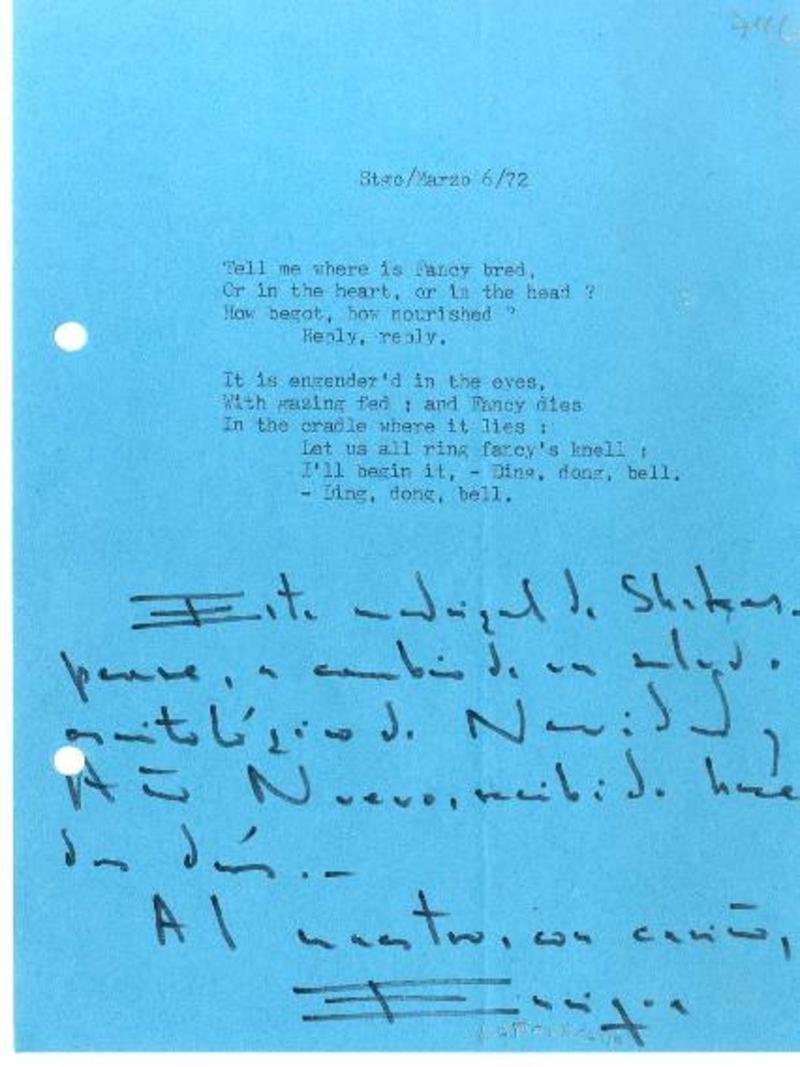 Stgo/Marzo 6/72
Tell me where is Fancy bred,
Or in the heart, or in the head ?
How begot, how nourished ?
Reply, reply.
It is engender'd in the eyes,
With gazing fed ; and Fancy dies
In the cradle where it lies :
Let us all ring fancy's knell ;
I'll begin it, - Ding, dong, bell.
- Ding, dong, bell.
Este madrigal de Shakes-
peare, a cambio de un saludo
ornitológico de Navidad y
Año Nuevo, recibido hace
dos días.-
Al maestro, con cariño,
Enrique